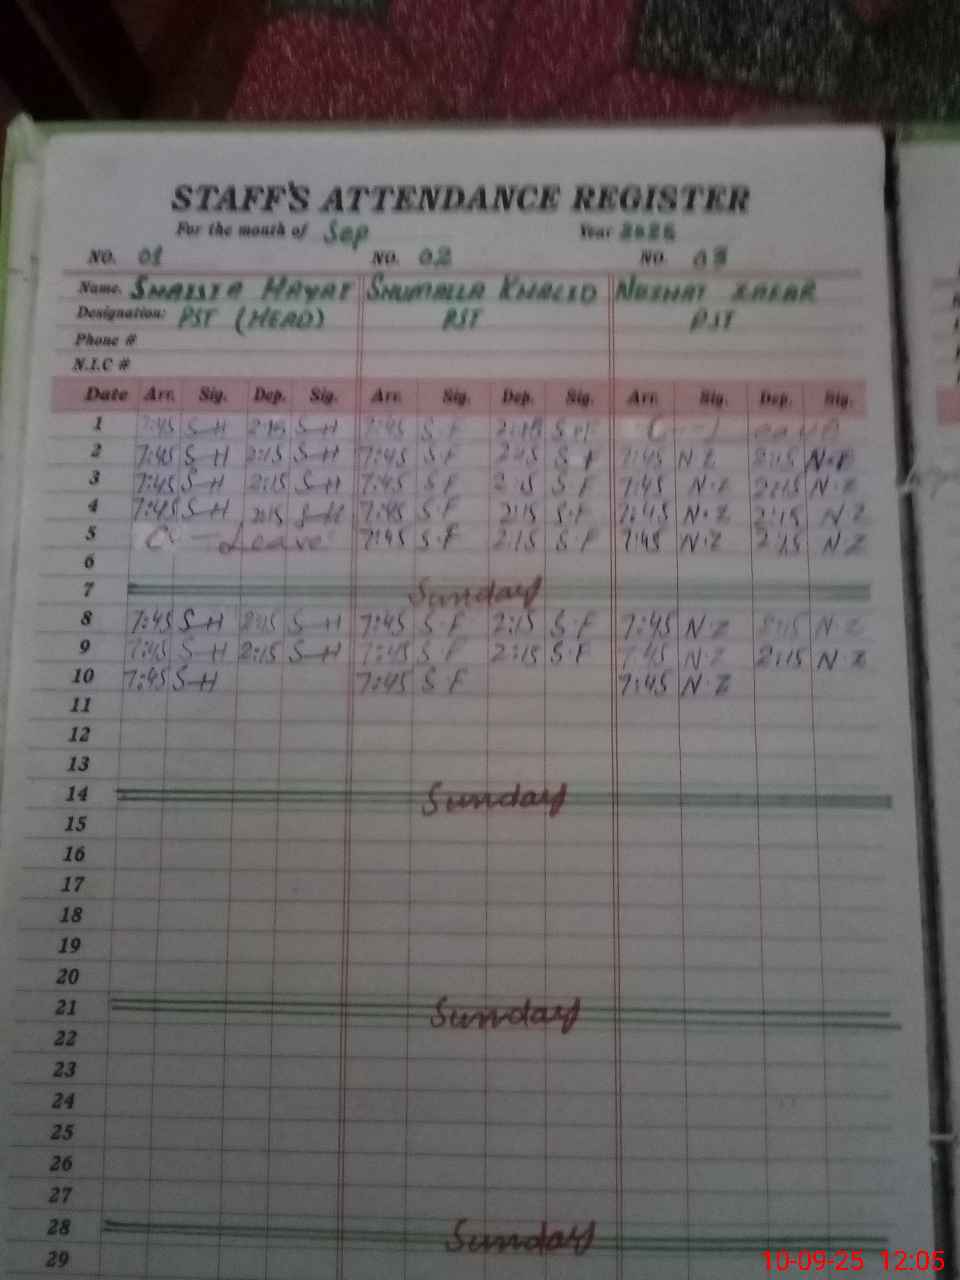 STAFF'S ATTENDANCE REGISTER
For the month of Sep Year 2025
NO. 01 NO. 02 NO. 03
Name. SHAISTA HAYAT SHUMAILA KHALID NUZHAT
Designation: PST (HEAD) PST PST
Phone #
N.I.C #
Date Arr. Sig. Dep. Sig. Arr. Sig. Dep. Sig. Arr. Sig. Dep. Sig.
1 7:45 S-H 2:15 S-H 7:45 S.F 2:15 S.F C-Leave
2 7:45 S-H 2:15 S-H 7:45 S F 2:15 S F 7:45 N Z 2:15
3 7:45 S-H 2:15 S-H 7:45 S F 2:15 S F 7:45 N.Z 2:15 N.Z
4 7:45 S-H 2:15 S-H 7:45 S.F 2:15 S.F 7:45 N.Z 2:15 N Z
5 C-Leave 7:45 S.F 2:15 S.F 7:45 N.Z 2:15 N Z
6
7 Sunday
8 7:45 S-H 2:15 S-H 7:45 S.F 2:15 S.F 7:45 N.Z 2:15 N.Z
9 7:45 S-H 2:15 S-H 7:45 S F 2:15 S.F 7:45 N.Z 2:15 N.Z
10 7:45 S-H 7:45 S F 7:45 N.Z
11
12
13
14 Sunday
15
16
17
18
19
20
21 Sunday
22
23
24
25
26
27
28 Sunday
29
10-09-25 12:05